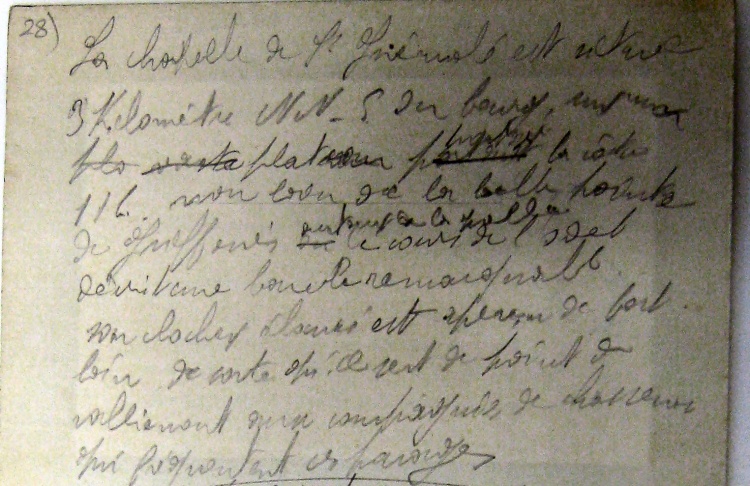 28)
La chapelle de St Guénolé est située
3 Kilomètre N N-E du bourg, sur un
plateau la côte
116. non loin de la belle pointe
de le cours de l'odet
décrit une boucle remarquable.
son clocher élancé est aperçu de fort
loin de sorte qu'il sert de point de
ralliement aux compagnies de chasseurs
qui fréquentent ces parages